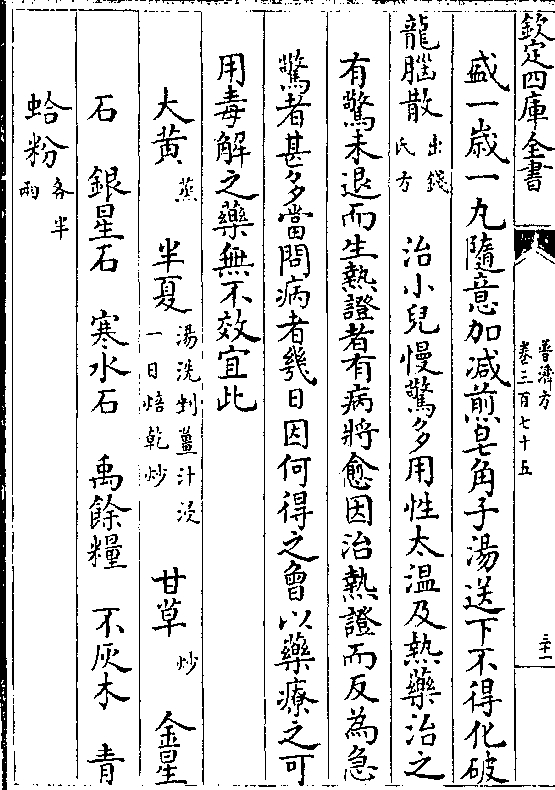 欽定四庫全書
普濟方
卷三百七十五
三十一
盛一歲一丸隨意加减煎皂角子湯送下不得化破
龍腦散出錢氏方 治小兒慢驚多用性太温及熱藥治之
有驚未退而生熱證者有病將愈因治熱證而反為急
驚者甚多當問病者幾日因何得之曾以藥療之可
用毒解之藥無不效宜此
大黄蒸 半夏湯洗剉薑汁浸一日焙乾炒 甘草炒 金星
石 銀星石 寒水石 禹餘糧 不灰木 青
蛤粉各半兩